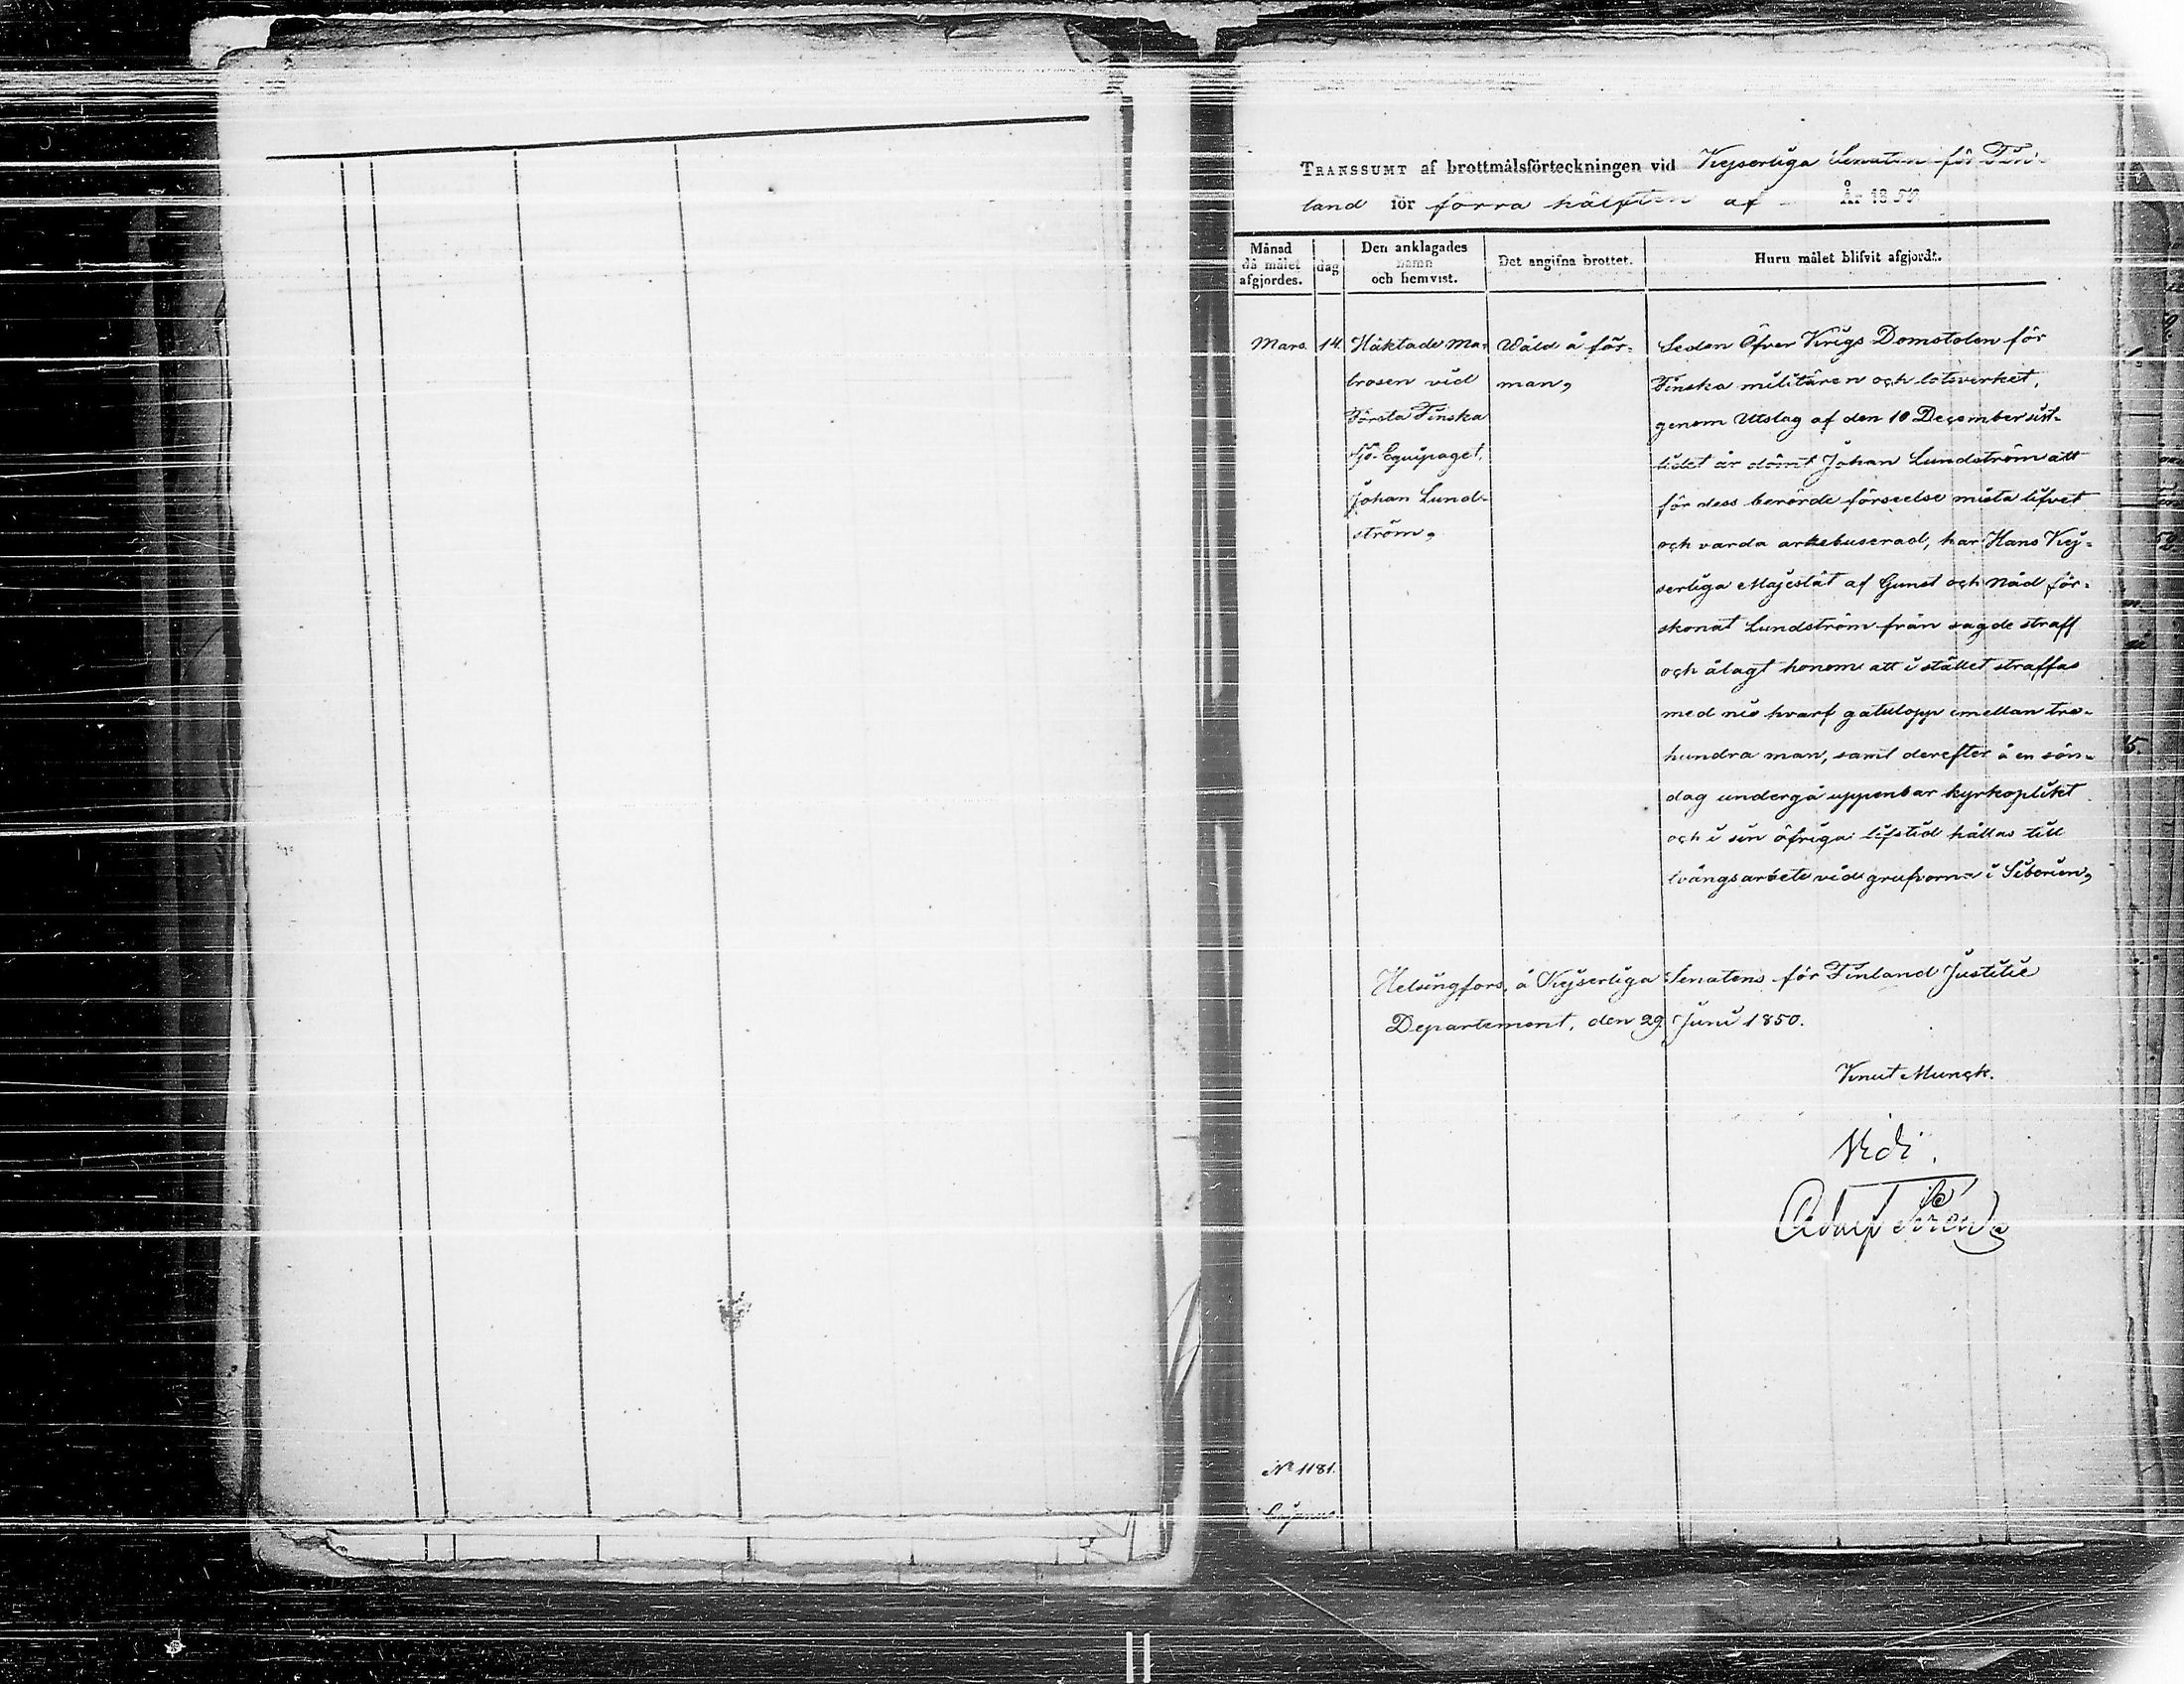 TRANSSUMT af brottmålsförteckningen vid Kejserliga Senaten för Fin-
land för förra hälften af År 1850
Månad då målet afgjordes.
dag
Den anklagades namn och hemvist.
Det angifna brottet.
Huru målet blifvit afgjordt.
Mars. 14.
Häktade Ma-
trosen vid
Första Finska
Sjö-Equipaget,
Johan Lund-
ström,
Wåld å för-
man,
Sedan Öfver Krigs Domstolen för
Finska militären och lotsverket,
genom Utslag af den 10 December sist-
lidet år dömt Johan Lundström att
för dess berörde förseelse mista lifvet
och varda arkebuserad, har Hans Kej-
serliga Majestät af Gunst och Nåd för-
skonat Lundström från sagde straff
och ålagt honom att i stället straffas
med nio hvarf gatulopp emellan tre-
hundra man, samt derefter å en sön-
dag undergå uppenbar kyrkoplikt
och i sin öfriga lifstid hållas till
tvångsarbete vid grufvorna i Siberien,
Helsingfors, å Kejserliga Senatens för Finland Justitie
Departement, den 29 Juni 1850.
Knut Munck.
Vidi.
Adolf
No 1181.